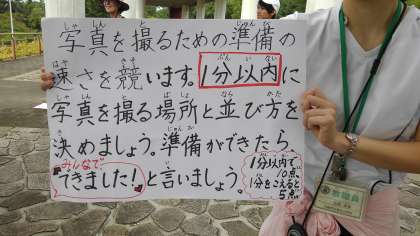 写真を撮るための準備の
速さを競います。1分以内に
写真を撮る場所と並び方を
決めましょう。準備ができたら、
みんなで
できました！と言いましょう。
1分以内で
10点
1分をこえると
5点